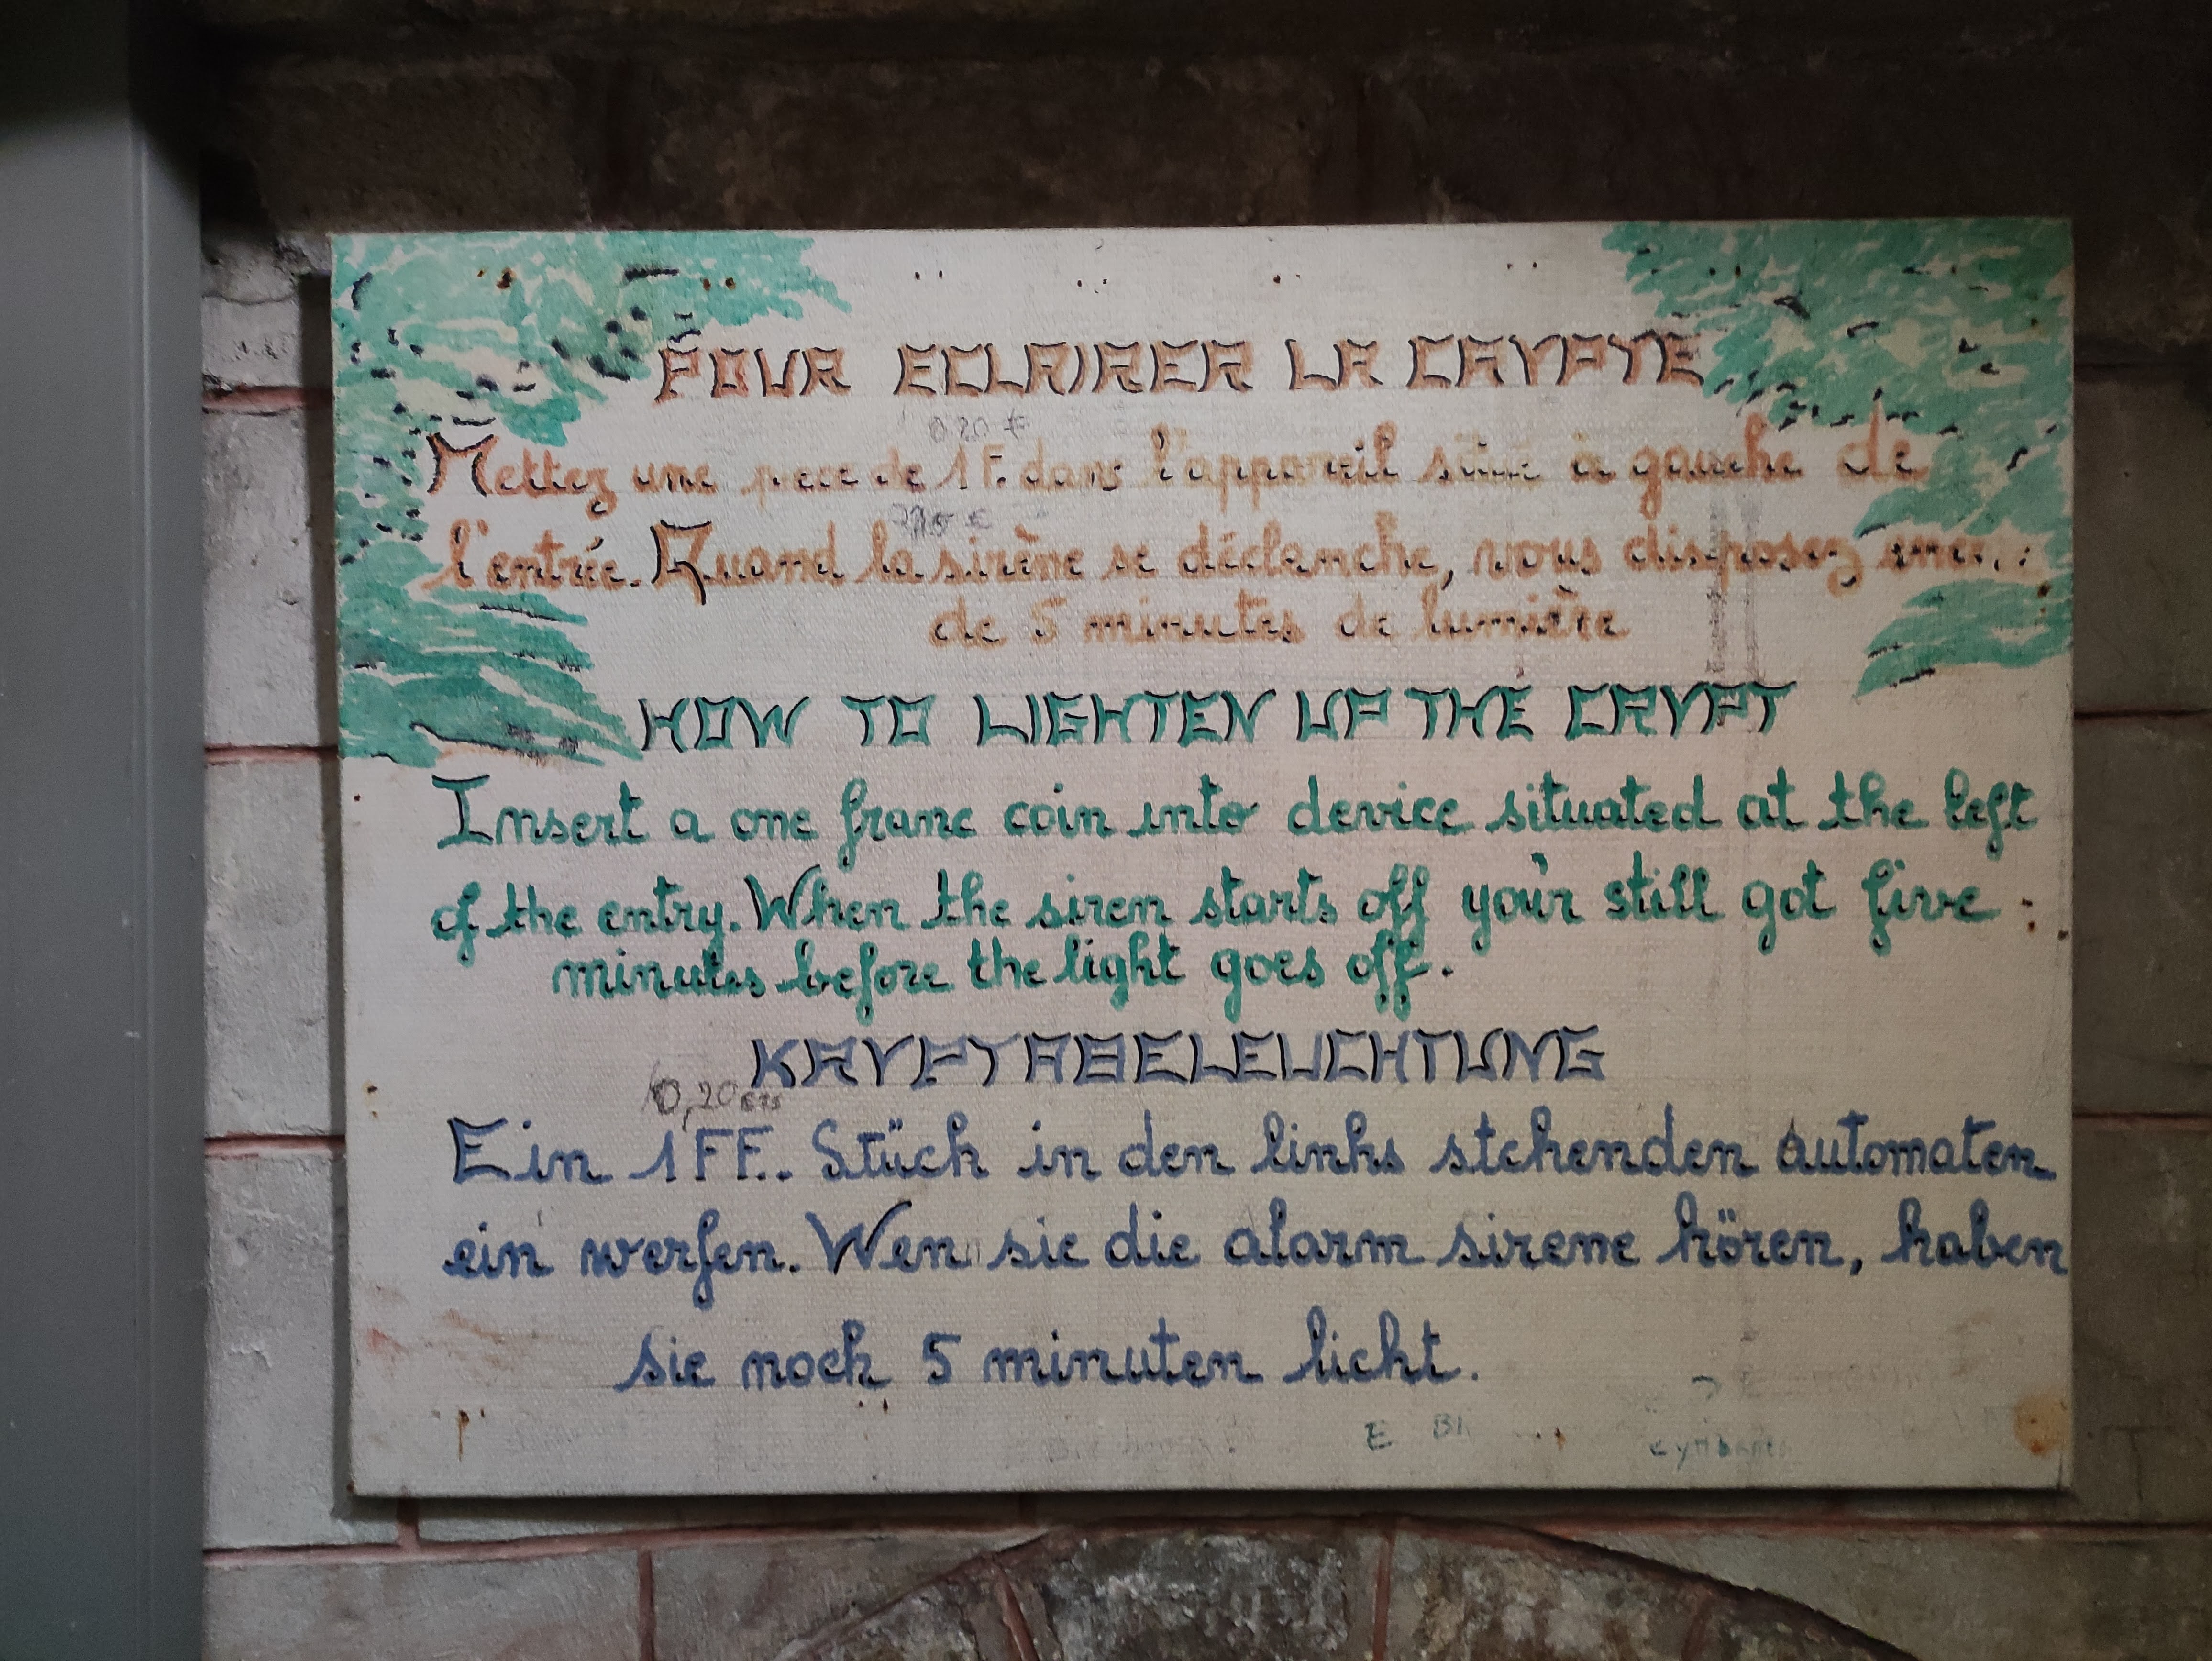 POUR ECLAIRER LA CRYPTE
0 20 €
Mettez une piece de 1F. dans l'appareil situe à gauche de
l'entrée. Quand la sirène se déclanche, vous disposez
de 5 minutes de lumière
HOW TO LIGHTEN UP THE CRYPT
Insert a one franc coin into device situated at the left
of the entry. When the siren starts off you'r still got five :
minutes before the light goes off.
KRYPTABELEUCHTUNG
0,20 cts
Ein 1FF.. Stück in den links stehenden automaten
ein werfen. Wen sie die alarm sirene hören, haben
sie noch 5 minuten licht.